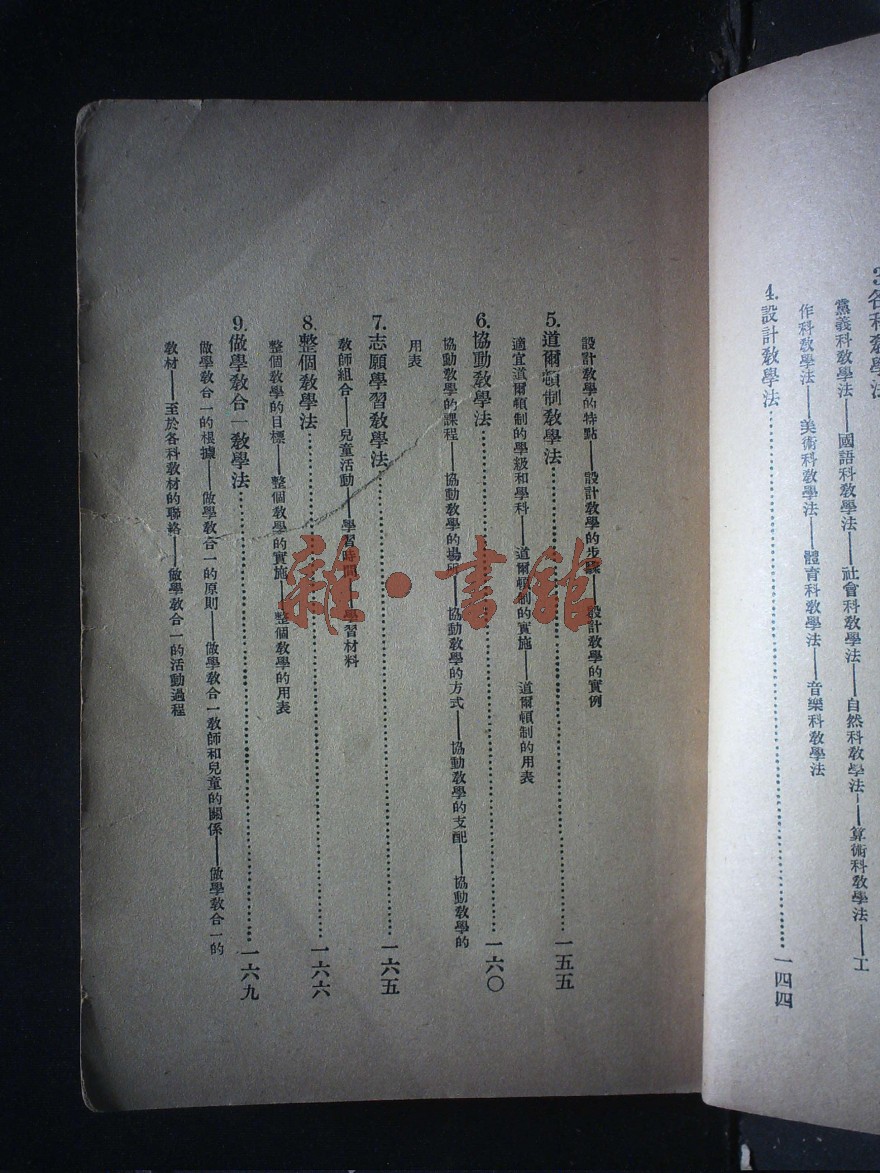 3.各科教學法
黨義科教學法——國語科教學法——社會科教學法——自然科教學法——算術科教學法——工
作科教學法——美術科教學法——體育科教學法——音樂科教學法
4.設計教學法……一四四
設計教學的特點——設計教學的步驟——設計教學的實例
5.道爾頓制教學法……一五五
適宜道爾頓制的學級和學科——道爾頓制的實施——道爾頓制的用表
6.協動教學法……一六〇
協動教學的課程——協動教學的場所——協動教學的方式——協動教學的支配——協動教學的
用表
7.志願學習教學法……一六五
教師組合——兒童活動——學習時間——學習材料
8.整個教學法……一六六
整個教學的目標——整個教學的實施——整個教學的用表
9.做學教合一教學法……一六九
做學教合一的根據——做學教合一的原則——做學教合一教師和兒童的關係——做學教合一的
教材——至於各科教材的聯絡——做學教合一的活動過程
雜·書館